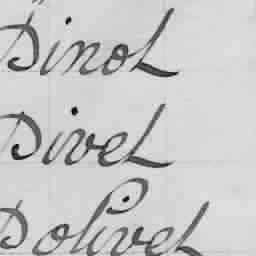 Dinot
Divet
Dolivet